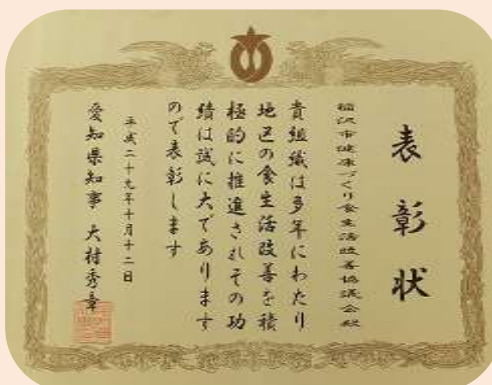 表彰状
稲沢市健康づくり食生活改善協議会殿
貴組織は多年にわたり
地区の食生活改善を積
極的に推進されその功
績は誠に大であります
ので表彰します
平成二十九年十月十二日
愛知県知事 大村秀章